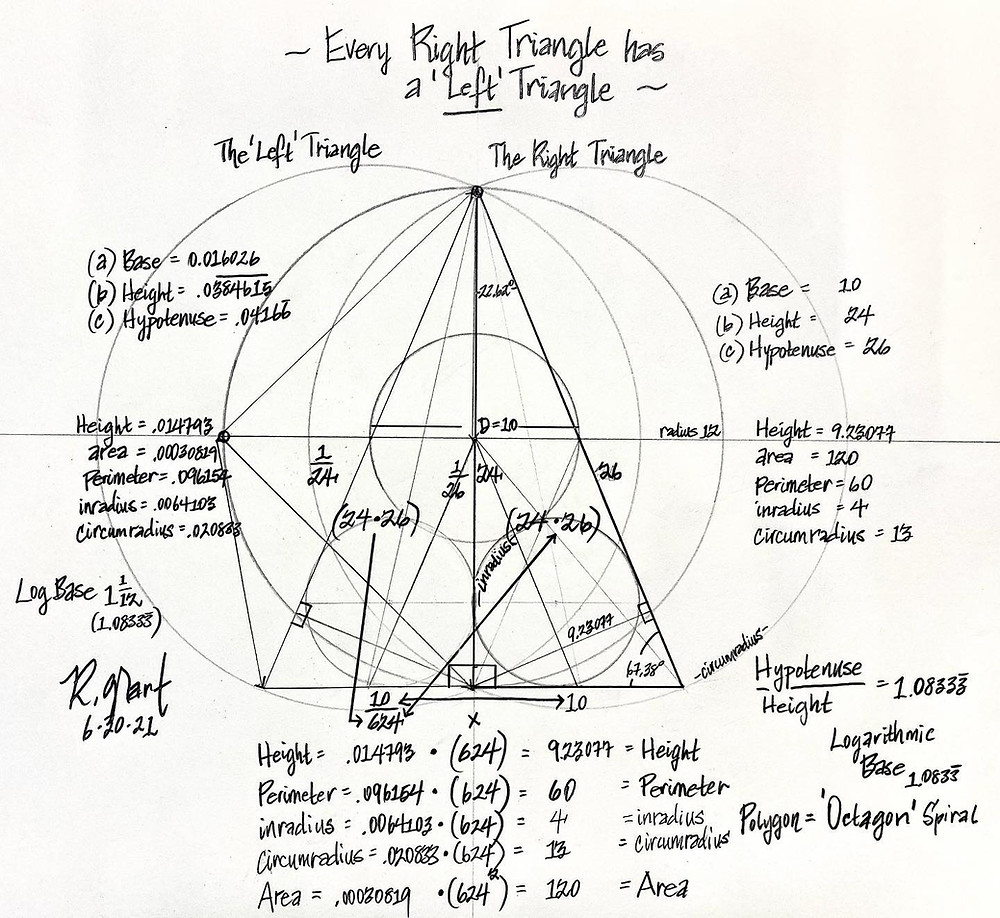 ~ Every Right Triangle has
a 'Left' Triangle ~
The 'Left' Triangle
The Right Triangle
(a) Base = 0.016026
(b) Height = .0384615
(c) Hypotenuse = .04166
22.62°
(a) Base = 10
(b) Height = 24
(c) Hypotenuse = 26
Height = .014793
area = .00030819
Perimeter = .096154
inradius = .0064103
circumradius = .020833
D=10
radius 12
Height = 9.23077
area = 120
Perimeter = 60
inradius = 4
circumradius = 13
1/24
1/26
24
26
(24·26)
(24·26)
-inradius-
9.23077
67.38°
-circumradius-
Log Base 1 1/12
(1.0833)
6·30·21
10/624
10
x
Hypotenuse/Height = 1.08333
Logarithmic
Base 1.0833
Polygon = 'Octagon' Spiral
Height = .014793 · (624) = 9.23077 = Height
Perimeter = .096154 · (624) = 60 = Perimeter
inradius = .0064103 · (624) = 4 = inradius
circumradius = .020833 · (624) = 13 = circumradius
Area = .00030819 · (624²) = 120 = Area